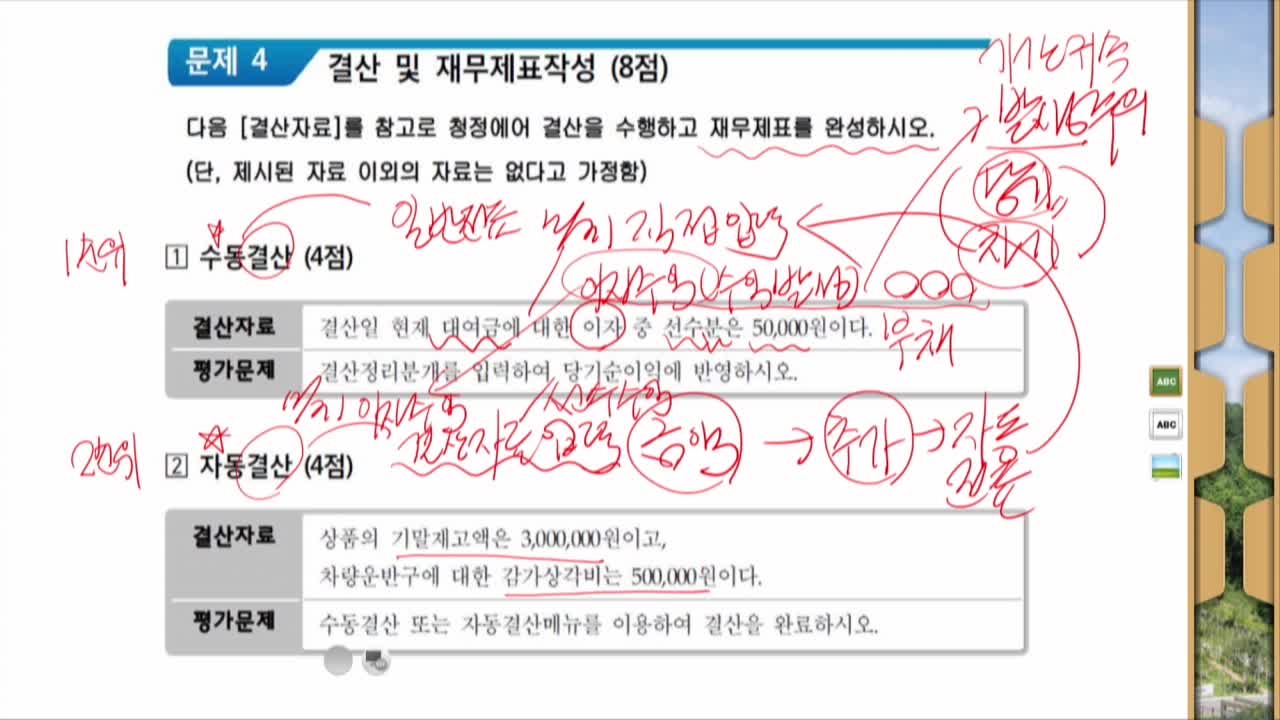 문제 4 결산 및 재무제표작성 (8점)
다음 [결산자료]를 참고로 청정에어 결산을 수행하고 재무제표를 완성하시오.
(단, 제시된 자료 이외의 자료는 없다고 가정함)
발생주의
당기
차기
일반전표 직접입력
1순위
1 수동결산 (4점)
이자수익(수익발생) 000
결산자료 결산일 현재 대여금에 대한 이자 중 선수분은 50,000원이다.
부채
평가문제 결산정리분개를 입력하여 당기순이익에 반영하시오.
이자수익 선수수익
2순위
결산자료입력 금액 → 추가 → 자동
전표
2 자동결산 (4점)
결산자료 상품의 기말재고액은 3,000,000원이고,
차량운반구에 대한 감가상각비는 500,000원이다.
평가문제 수동결산 또는 자동결산메뉴를 이용하여 결산을 완료하시오.
ABC
ABC